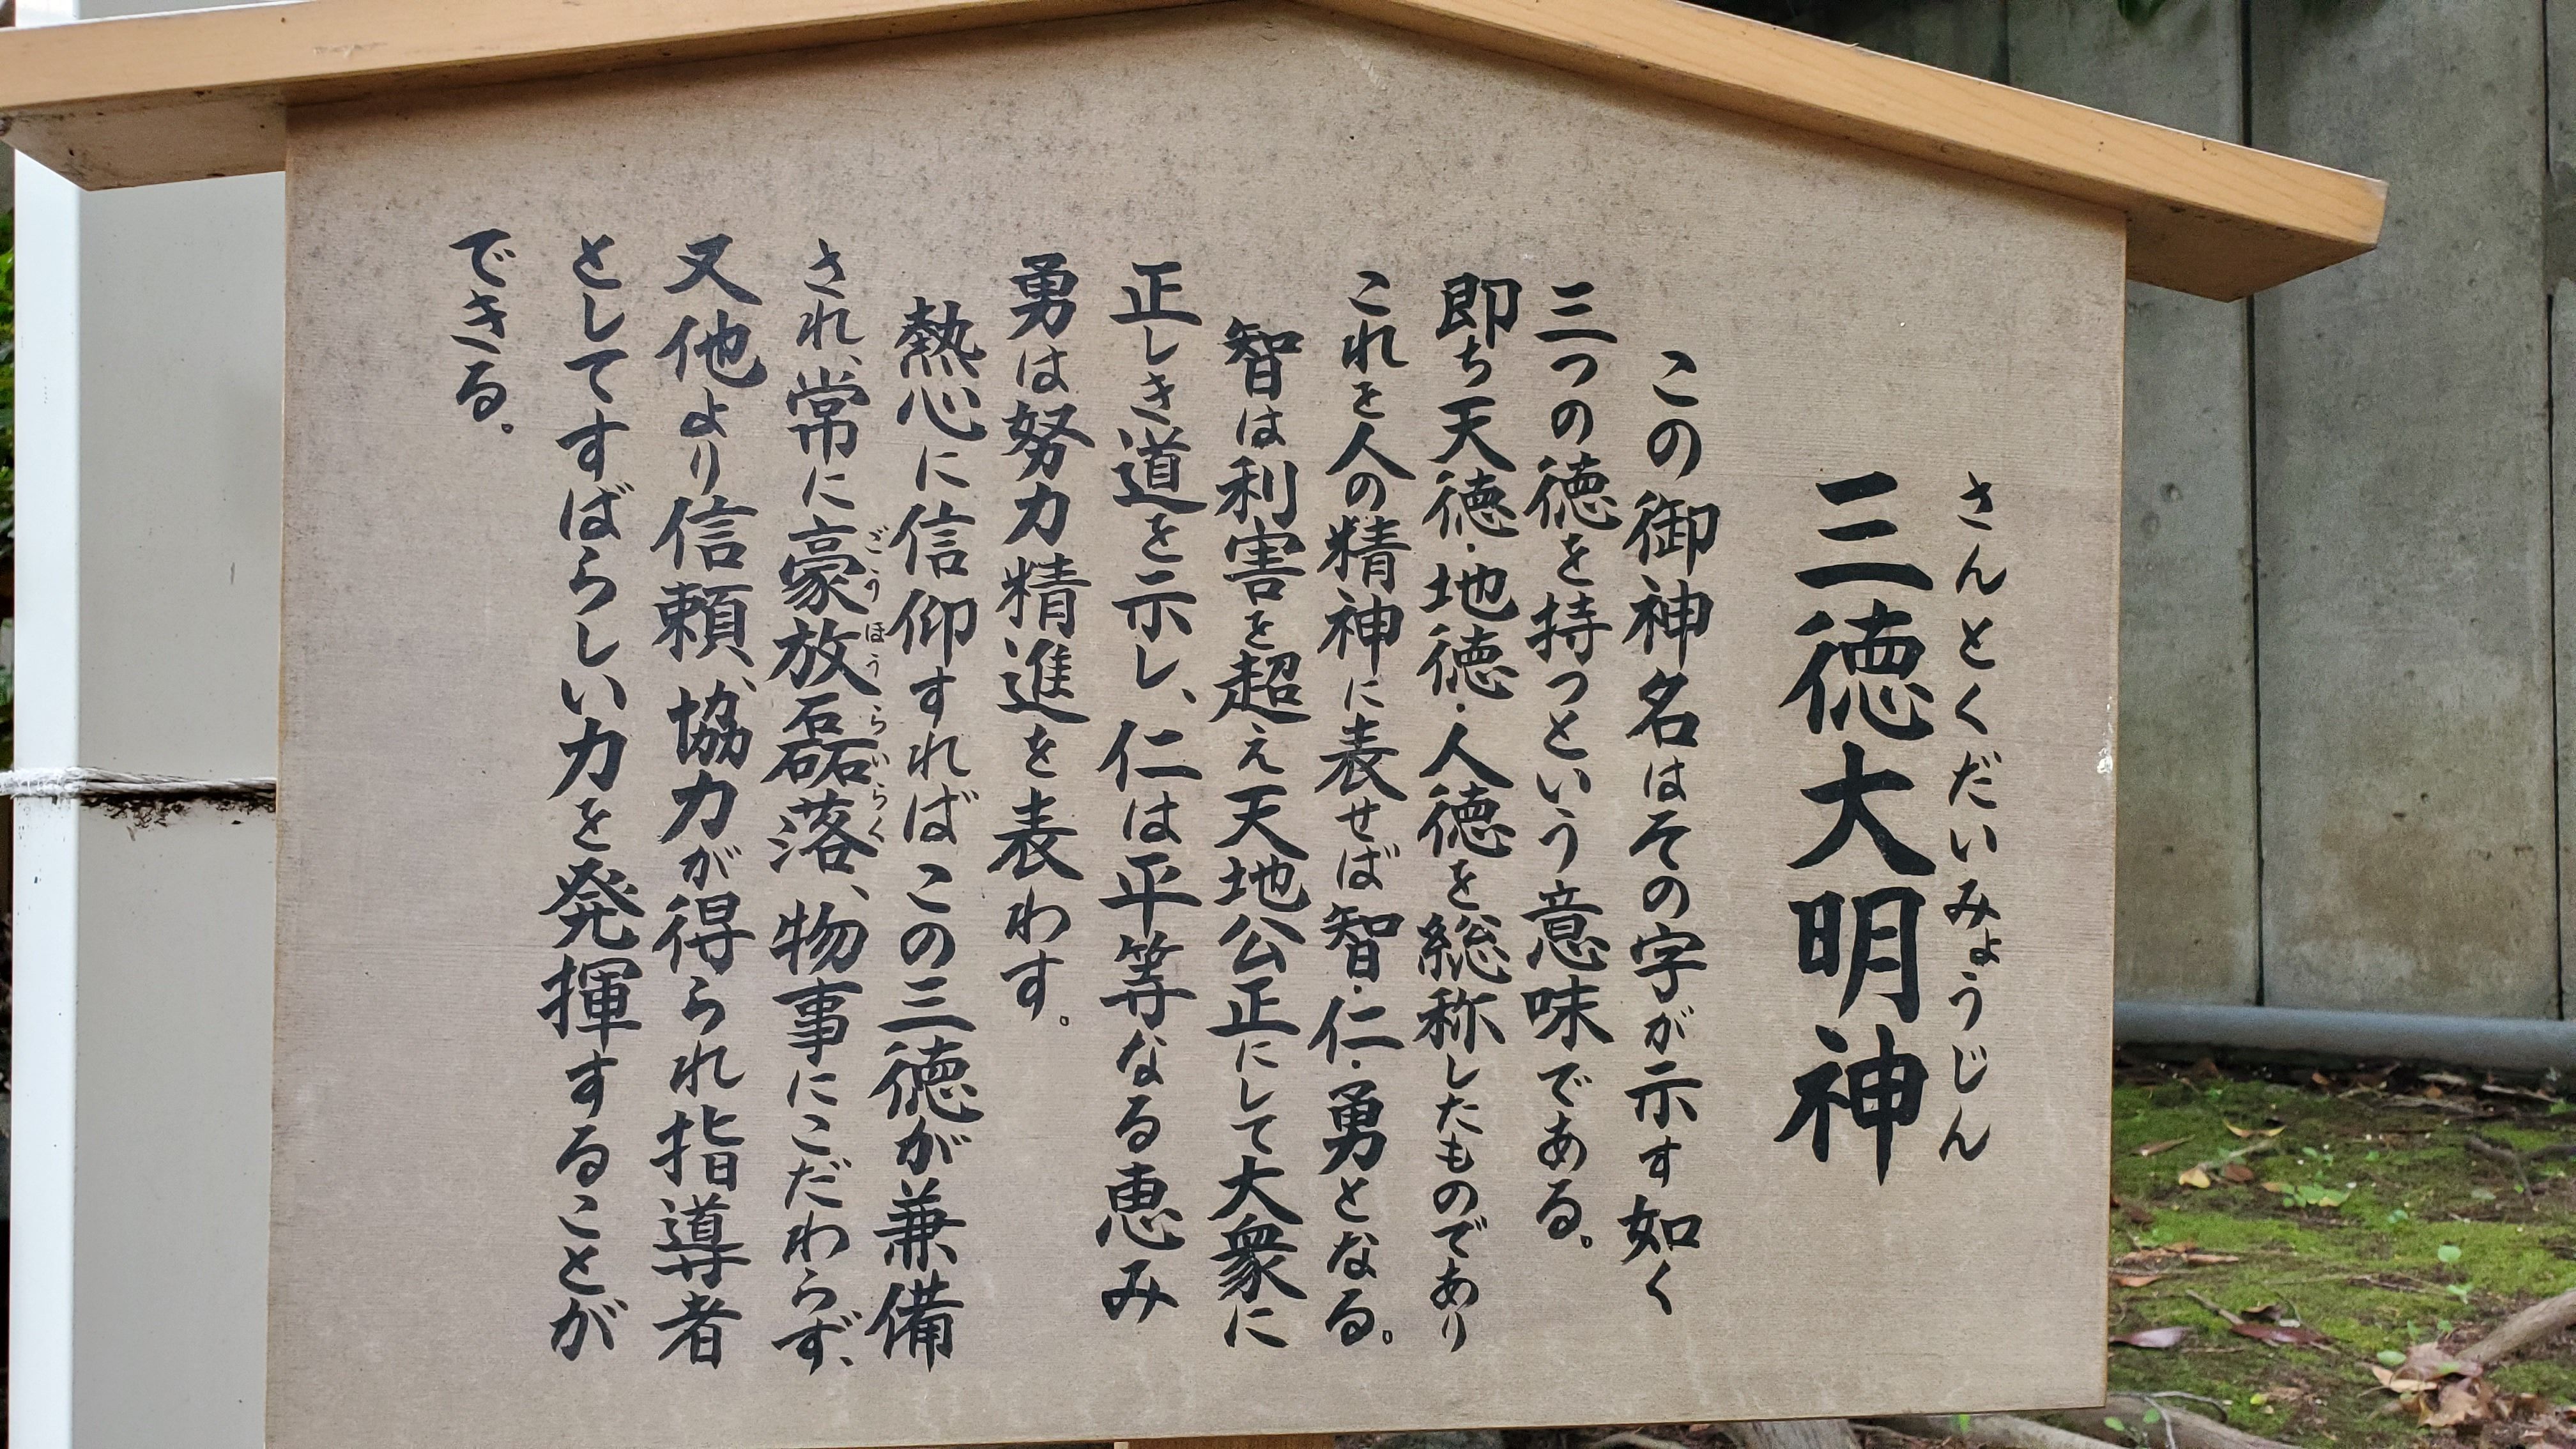 さんとくだいみょうじん
三徳大明神
この御神名はその字が示す如く
三つの徳を持つという意味である。
即ち天徳・地徳・人徳を総称したものであり
これを人の精神に表せば智・仁・勇となる。
智は利害を超え天地公正にして大衆に
正しき道を示し、仁は平等なる恵み
勇は努力精進を表わす。
熱心に信仰すればこの三徳が兼備
ごうほうらいらく
され、常に豪放磊落、物事にこだわらず、
又他より信頼、協力が得られ指導者
としてすばらしい力を発揮することが
できる。